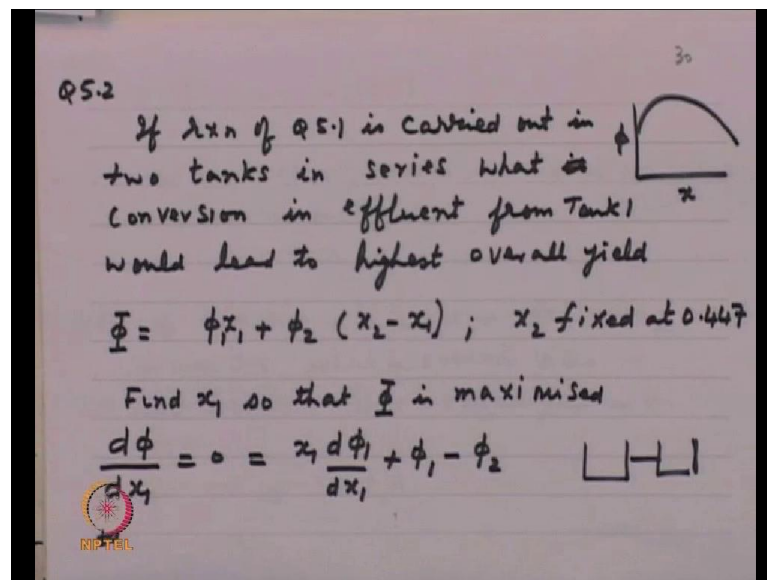 30
Q5.2
If rxn of Q5.1 is carried out in
two tanks in series what is
conversion in effluent from Tank1
would lead to highest overall yield
ϕ
x
Φ = ϕ₁x₁ + ϕ₂ (x₂ - x₁) ; x₂ fixed at 0.447
Find x₁ so that Φ is maximised
dϕ/dx₁ = 0 = x₁ dϕ₁/dx₁ + ϕ₁ - ϕ₂
NPTEL